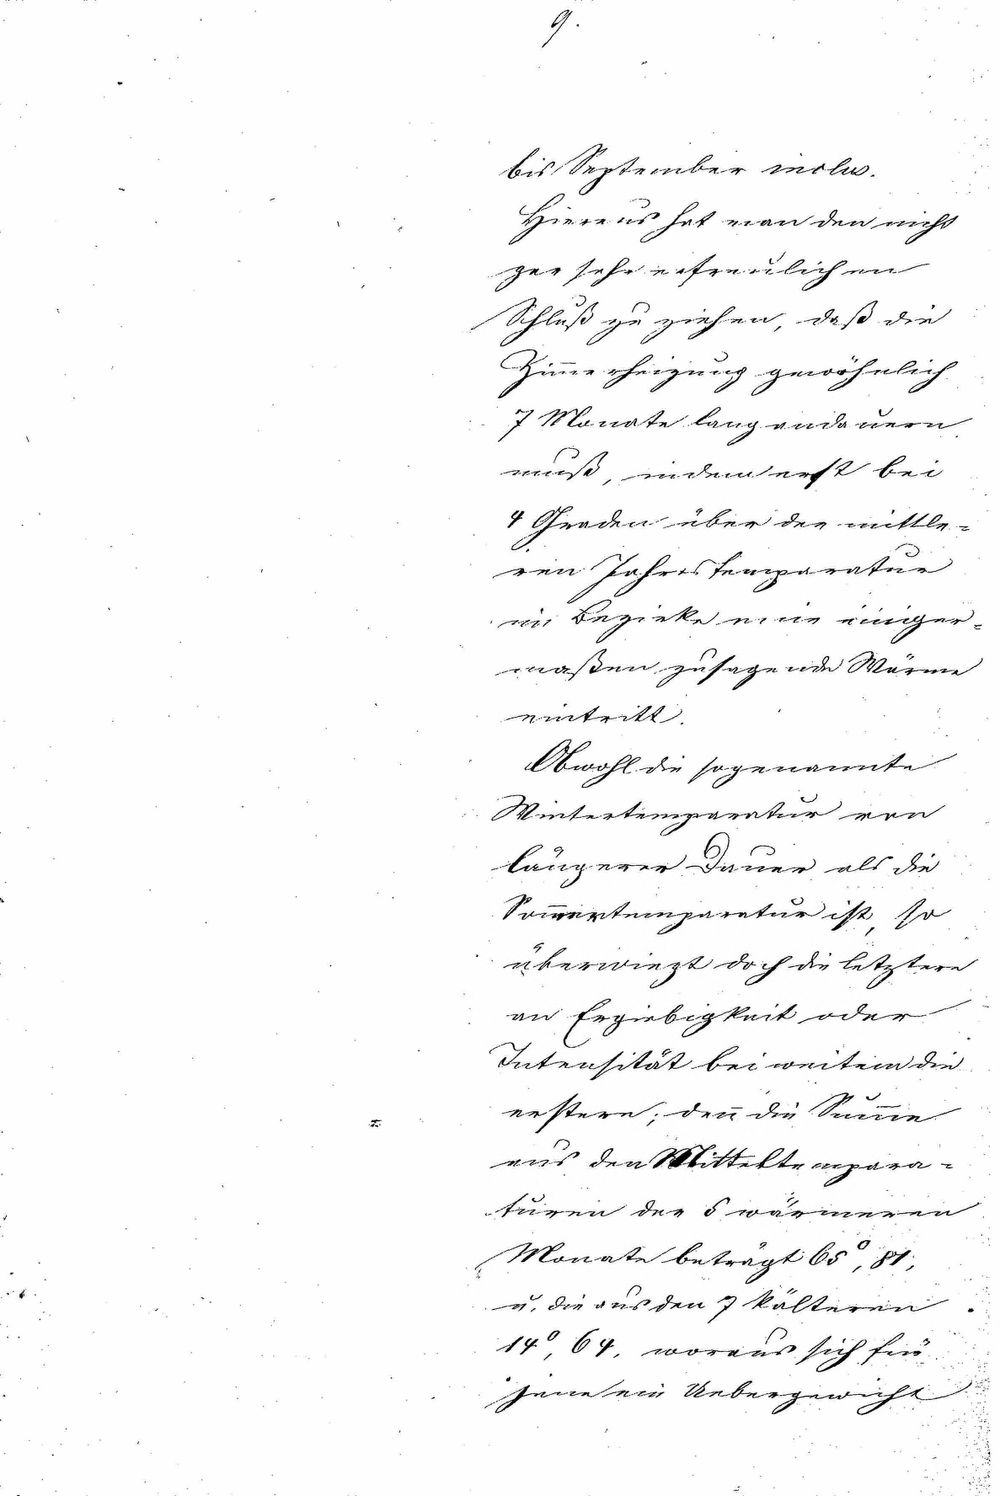 9.
bis September inclus.
Hieraus hat man den nicht
gar sehr erfreulichen
Schluß zu ziehen, daß die
Zim̅erheizung gewöhnlich
7 Monate lang andauern
muß, indem erst bei
4 Graden über der mittle=
ren Jahrestemparatur
im Bezirke eine einiger=
maßen zusagende Wärme
eintritt.
Obwohl die sogenannte
Wintertemparatur von
längerer Dauer als die
Som̅ertemparatur ist, so
überwiegt doch die letztere
an Ergiebigkeit oder
Intensität bei weitem die
erstere; den̅ die Sum̅e
aus den Mitteltempara=
turen der 5 wärmeren
Monate beträgt 65°,81,
u. die aus den 7 kälteren
14°,64, woraus sich für
jene ein Uebergewicht